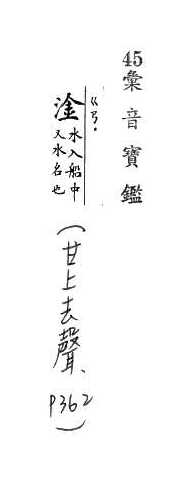 45彙音寶鑑
ㄍㄢˋ
淦水入船中
又水名也
(甘上去聲、P362)